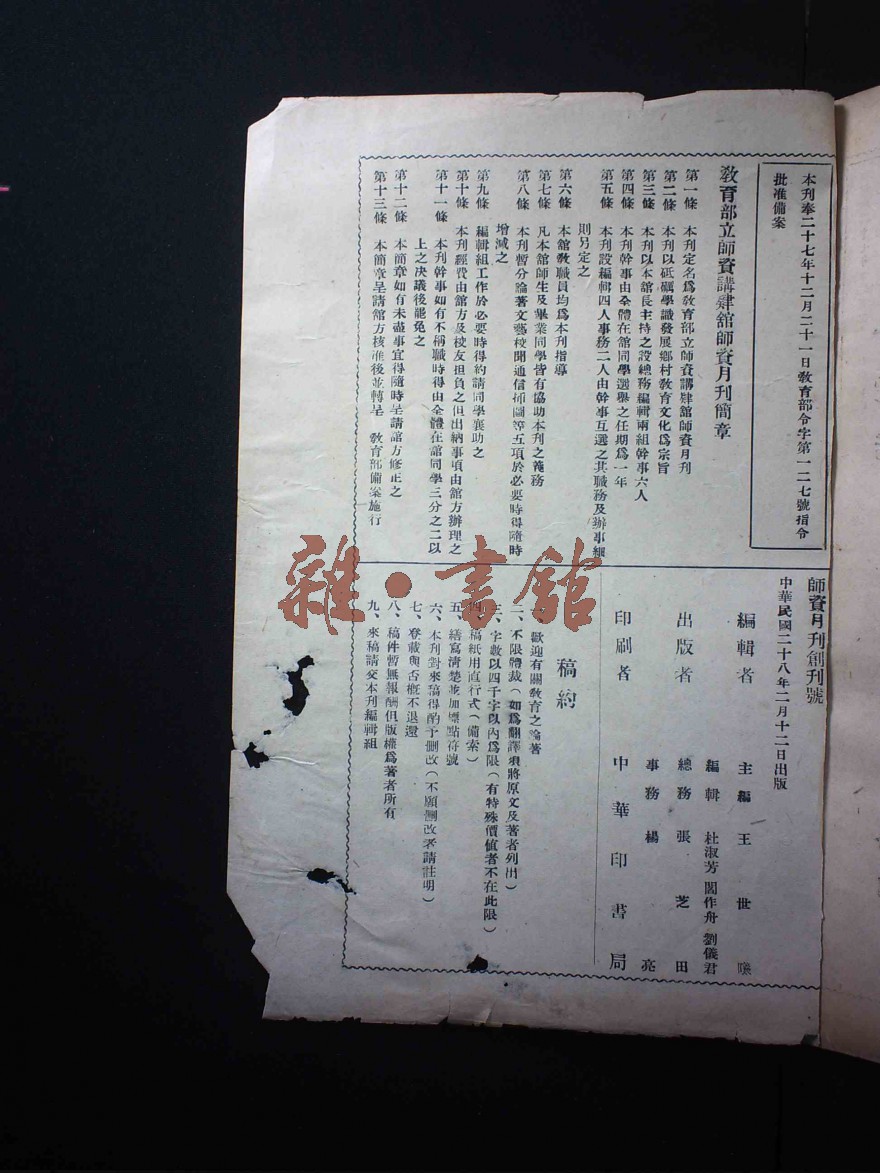 本刊奉二十七年十二月二十一日敎育部令字第一二七號指令
批准備案
敎育部立師資講肄舘師資月刊簡章
第一條 本刊定名爲敎育部立師資講肄舘師資月刊
第二條 本刊以砥礪學識發展鄉村敎育文化爲宗旨
第三條 本刊以本舘長主持之設總務編輯兩組幹事六人
第四條 本刊幹事由全體在舘同學選舉之任期爲一年
第五條 本刊設編輯四人事務二人由幹事互選之其職務及辦事細
則另定之
第六條 本舘敎職員均爲本刊指導
第七條 凡本舘師生及畢業同學皆有協助本刊之義務
第八條 本刊暫分論著文藝校聞通信插圖等五項於必要時得隨時
增減之
第九條 編輯組工作於必要時得約請同學襄助之
第十條 本刊經費由舘方及校友担負之但出納事項由舘方辦理之
第十一條 本刊幹事如有不稱職時得由全體在舘同學三分之二以
上之决議後罷免之
第十二條 本簡章如有未盡事宜得隨時呈請舘方修正之
第十三條 本簡章呈請舘方核准後並轉呈 敎育部備案施行
師資月刊創刊號
中華民國二十八年二月十二日出版
編輯者 主編 王世
編輯 杜淑芳 閻作舟 劉儀君
出版者 總務 張芝田
事務 楊亮
印刷者 中華印書局
稿約
一、歡迎有關敎育之論著
二、不限體裁(如爲翻譯須將原文及著者列出)
三、字數以四千字以內爲限(有特殊價値者不在此限)
四、稿紙用直行式(備索)
五、繕寫清楚並加標點符號
六、本刊對來稿得酌予刪改(不願刪改者請註明)
七、登載與否槪不退還
八、稿件暫無報酬但版權爲著者所有
九、來稿請交本刊編輯組
雜·書舘